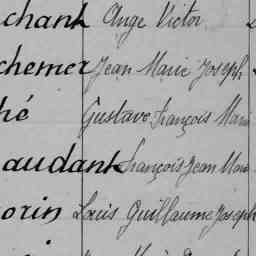 chant Ange Victor
chemer Jean Marie Joseph
hé Gustave François Marie
audant François Jean Marie
orin Louis Guillaume Joseph